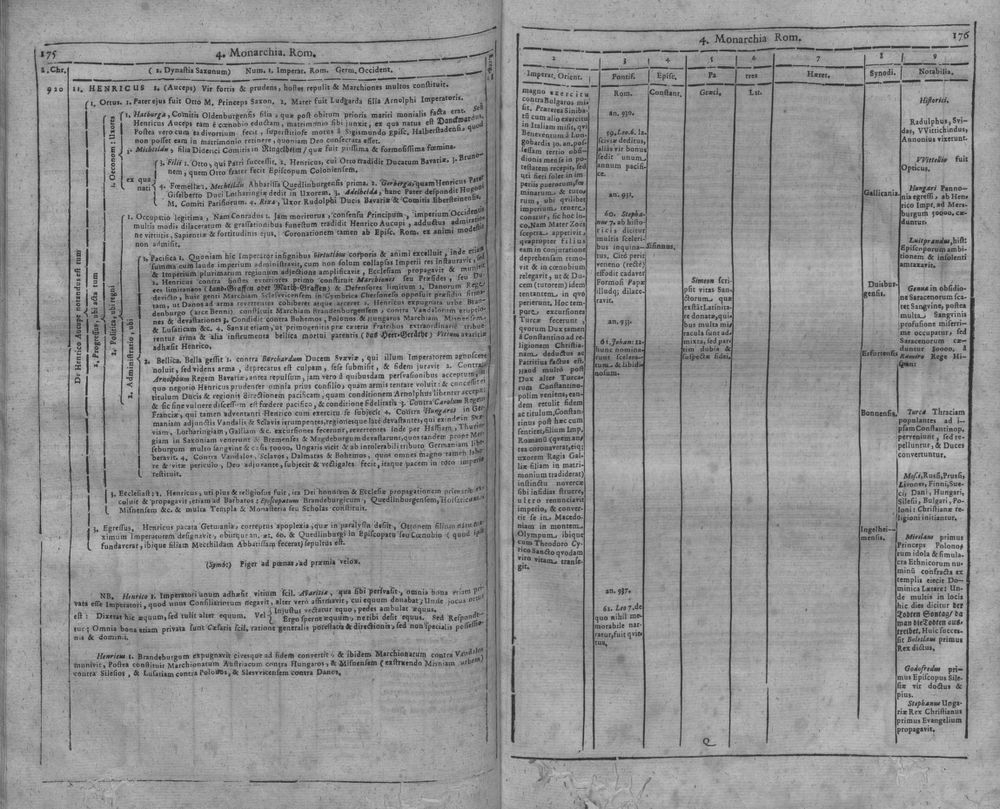 175
4. Monarchia. Rom.
à Chr.
( 2. Dynastia Saxonum) Num. 1. Imperat. Rom. Germ. Occident.
920
11. HENRICUS 1. (Auceps) Vir fortis & prudens, hostes repulit & Marchiones multos constituit.
De Henrico Aucupe notandus est tum
1. Ortus. 1. Pater ejus fuit Otto M. Princeps Saxon. 2. Mater fuit Ludgarda filia Arnolphi Imperatoris.
2. Progressus, ubi acta tum
1. Oeconom: Uxores
1. Hatburga, Comitis Oldenburgensis filia, quæ post obitum prioris mariti monialis facta erat. Sed
Henricus Auceps eam è cœnobio eductam, matrimonio sibi junxit, ex qua natus est Danckmardus,
Postea vero cum ea divortium fecit, superstitiose motus à Sigismundo Episc, Halberstadensi, quod
non posset eam in matrimonio retinere, quoniam Deo consecrata esset.
2. Mechtildis, filia Diderici Comitis in Ringelheim/ quæ fuit piissima & formosissima fœmina.
ex qua
nati
3. Filii 1. Otto, qui Patri successit. 2. Henricus, cui Otto tradidit Ducatum Bavariæ. 3. Bruno-
nem, quem Otto frater fecit Episcopum Coloniensem.
4. Fœmellæ 1. Mechtildis Abbatissa Quedlinburgensis prima. 2. Gerberga, quam Henricus Pater
Giselberto Duci Lotharingiæ dedit in Uxorem. 3. Adelheida, hanc Pater despondit Hugoni
M. Comiti Parisiorum. 4. Rixa, Uxor Rudolphi Ducis Bavariæ & Comitis sibersteinensis.
2. Politica, ubi regni
1. Occupatio legitima, Nam Conradus 1. Jam moriturus, consensu Principum, imperium Occidentis
multis modis dilaceratum & grassationibus funestum tradidit Henrico Aucupi, adductus admiratio-
ne virtutis, Sapientiæ & fortitudinis ejus. Coronationem tamen ab Episc. Rom. ex animi modestia
non admisit.
2. Administratio, ubi
1. Pacifica 1. Quoniam hic Imperator insignibus virtutibus corporis & animi excelluit, inde etiam
summa cum laude imperium administravit, cum non solum collapsas Imperii res instauravit, sed
& Imperium plurimarum regionum adjectione amplificavit, Ecclesiam propagavit & munivit
2. Henricus contra hostes exteriores primo constituit Marchiones seu Præsides, seu Du-
ces limitatios (Land-Graffen oder Marck-Graffen) & Defensores limitum 1. Danorum Rege
devicto, huic genti Marchiam Sclesvicensem in Cymbrica Chersoneso opposuit præsidii firma-
tam, ut Danos ad arma revertentes cohiberet atque arceret 2. Henricus expugnata urbe Bran-
denburgo (arce Benni) constituit Marchiam Brandenburgensem, contra Vandalorum eruptio-
nes & devastationes 3. Condidit contra Bohemos, Polonos & Hungaros Marchiam Misnensem,
& Lusatiam &c. 4. Sanxit etiam, ut primogeniti præ cæteris fratribus extraordinario tribue-
rentur arma & alia instrumenta bellica mortui parentis (das Heer-Geräthe) Vitium avaritiæ
adhæsit Henrico.
2. Bellica. Bella gessit 1. contra Burchardum Ducem Sveviæ, qui illum Imperatorem agnoscere
noluit, sed videns arma, deprecatus est culpam, sese submisit, & fidem juravit 2. Contra
Arnolphum Regem Bavariæ, antea repulsum, jam vero à quibusdam persvasionibus acceptum, in
quo negotio Henricus prudenter omnia prius consilio, quam armis tentare voluit: & concessit ei
titulum Ducis & regionis directionem pacificam, quam conditionem Arnolphus libenter accepit,
& sic sine vulnere discessum est fœdere pacifico, & conditione fidelitatis 3. Contra Carolum Regem
Franciæ, qui tamen adventanti Henrico cum exercitu se subjecit 4. Contra Hungaros in Ger-
maniam adjunctis Vandalis & Sclavis irrumpentes, regionesque late devastantes, qui exinde in Sve-
viam, Lotharingiam, Galliam &c. excursiones fecerunt, revertentes inde per Hassiam, Thurin-
giam in Saxoniam venerunt & Bremenses & Magdeburgum devastarunt, quos tandem prope Mer-
seburgum multo sangvine & cæsis 50000, Ungaris vicit & ab intolerabili tributo Germaniam libe-
beravit. 4. Contra Vandalos, Sclavos, Dalmatas & Bohemos, quos omnes magno tamen labo-
re & vitæ periculo, Deo adjuvante, subjecit & vectigales fecit, itaque pacem in toto imperio
restituit.
3. Ecclesiast: 1. Henricus, uti pius & religiosus fuit, ita Dei honorem & Ecclesiæ propagationem
coluit & propagavit, etiam ad Barbaros: Episcopatum Brandeburgicum, Quedlinburgensem,
Misnensem &c. & multa Templa & Monasteria seu Scholas constituit.
3. Egressus, Henricus pacata Germania, correptus apoplexia, quæ in paralysin desiit, Ottonem filium
ximum Imperatorem designavit, obiitque an. æt. 60. & Quedlinburgi in Episcopatu seu Cœnobio ( quod ipse
fundaverat, ibique filiam Mecchildam Abbatissam fecerat) sepultus est.
(Symb:) Piger ad pœnas, ad præmia velox.
NB. Henrico 1. Imperatori unum adhæsit vitium scil. Avaritia, qua sibi persvasit, omnia bona etiam pri-
vata esse Imperatori, quod unus Consiliariorum negavit, alter vero affirmavit, cui equum donabat; Unde jocus ortus
est: Dixerat hic æquum, sed tulit alter equum. Vel Injustus vectetur equo, pedes ambulat æquus.
Ergo sperne æquum, neribi desit equus. Sed Responde-
tur; Omnia bona etiam privata sunt Cæsaris scil, ratione generalis potestatis & directionis, sed non specialis possessio-
nis & dominii.
Henricus 1. Brandeburgum expugnavit civesque ad fidem convertit, & ibidem Marchionatum contra Vandalos
munivit, Postea constituit Marchionatum Austriacum contra Hungaros, & Misnensem (exstruendo Misniam urbem)
contra Silesios, & Lusatiam contra Polonos, & Slesvvicensem contra Danos.
4. Monarchia Rom.
176
2
3
4
5
6
7
8
9
Imperat. Orient.
Pontif.
Episc.
Pa
tres
Hæret.
Synodi.
Notabilia.
magno exercitu
contra Bulgaros mi-
sit. Præterea Siniba-
tem cum alio exercitu
in Italiam misit, qui
Beneventum à Lon-
gobardis 30. an. pos-
sessam tertio obsi-
dionis mense in po-
testatem recepit, sed
qui fieri solet in im-
periis puerorum, se-
minatum & tuto-
rum, ubi quilibet
imperium, tenere,
conatur, sic hoc lo-
co, Nam Mater Zora
sceptra arripuit,
quapropter filius
eam in conjuratione
deprehensam remo-
vit & in cœnobium
relegavit, ut & Du-
cem (tutorem) idem
tentantem, in qvo
perierunt, Hoc tem-
pore, excursiones
Turcæ fecerunt,
qvorum Dux tamen
à Constantino ad re-
ligionem Christia-
nam deductus ac
Patritius factus est.
Haud multo post
Dux alter Turca-
rum Constantino-
polim veniens, ean-
dem retulit fidem
ac titulum, Constan-
tinus post hæc cum
sentiret, filium Imp.
Romanū (quem an-
tea coronaverat, eiq;
uxorem Regis Gal-
liæ filiam in matri-
monium tradiderat)
instinctu novercæ
sibi insidias struere,
ultro renunciavit
imperio, & conver-
tit se in Macedo-
niam in montem
Olympum, ibique
cum Theodoro Cy-
rico Sancto qvodam
viro vitam transe-
git.
Rom.
an. 930.
59. Leo. 6. la-
sciviæ deditus,
aliàs vir bonus
sedit unum
annum pacifi-
ce.
an. 931.
60. Stepha-
nus 7. ab histo-
ricis dicitur
multis sceleri-
bus inquina-
tus. Cito perit
veneno (rectè)
effodit cadaver
Formosi Papæ
illudq; dilace-
ravit.
an. 933.
61. Joham: 12.
hunc nomina-
runt scelera-
tum & libidi-
nosum.
an. 937.
62. Leo 7. de
quo nihil me-
morabile nar-
ratur, fuit quie-
tus,
Constant.
Sisinnus.
Græci,
Simeon scri-
psit vitas San-
ctorum, quæ
exstāt Latinita-
te donatæ, qui-
bus multa mi-
racula sunt ad-
mixta, sed par-
tim dubiæ &
suspectæ fidei.
Lat.
Gallicania.
Duisbur-
gensis.
Erfurtensis
Bonnensis.
Ingelhei-
mensis.
Historici.
Radulphus, Svi-
das, VVittichindus,
Annonius vixerunt.
VVitellio fuit
Opticus.
Hungari Panno-
nia egressi, ab Hen-
rico Impr. ad Mers-
burgum 50000, cæ-
duntur.
Luitprandus, hist:
Episcoporum ambi-
tionem & insolenti
am taxavit.
Genua in obsidio-
ne Saracenorum sca-
tet Sangvine, postea
multa, Sangvinis
profusione miserri-
me occupatur, sed
Saracenorum cæ-
duntur 30000. à
Ramiro Rege Hi-
span:
Turcæ Thraciam
populantes ad i-
psam Constantinop.
perveniunt, sed re-
pelluntur, & Duces
convertuntur.
Mosci, Russi, Prussi,
Livones, Finni, Sue-
ci, Dani, Hungari,
Silesii, Bulgari, Po-
loni : Christianæ re-
ligioni initiantur.
Mieslaus primus
Princeps Polono-
rum idola & simula-
cra Ethnicorum nu-
minū confracta ex
templis eiecit Do-
minica Lætare: Un-
de multis in locis
hic dies dicitur der
Todten Sontag/ da
man die Todten aus-
treibet, Huic succes-
sit Boleslaus primus
Rex dictus.
Godofredus pri-
mus Episcopus Sile-
siæ vir doctus &
pius.
Stephanus Unga-
riæ Rex Christianus
primus Evangelium
propagavit.